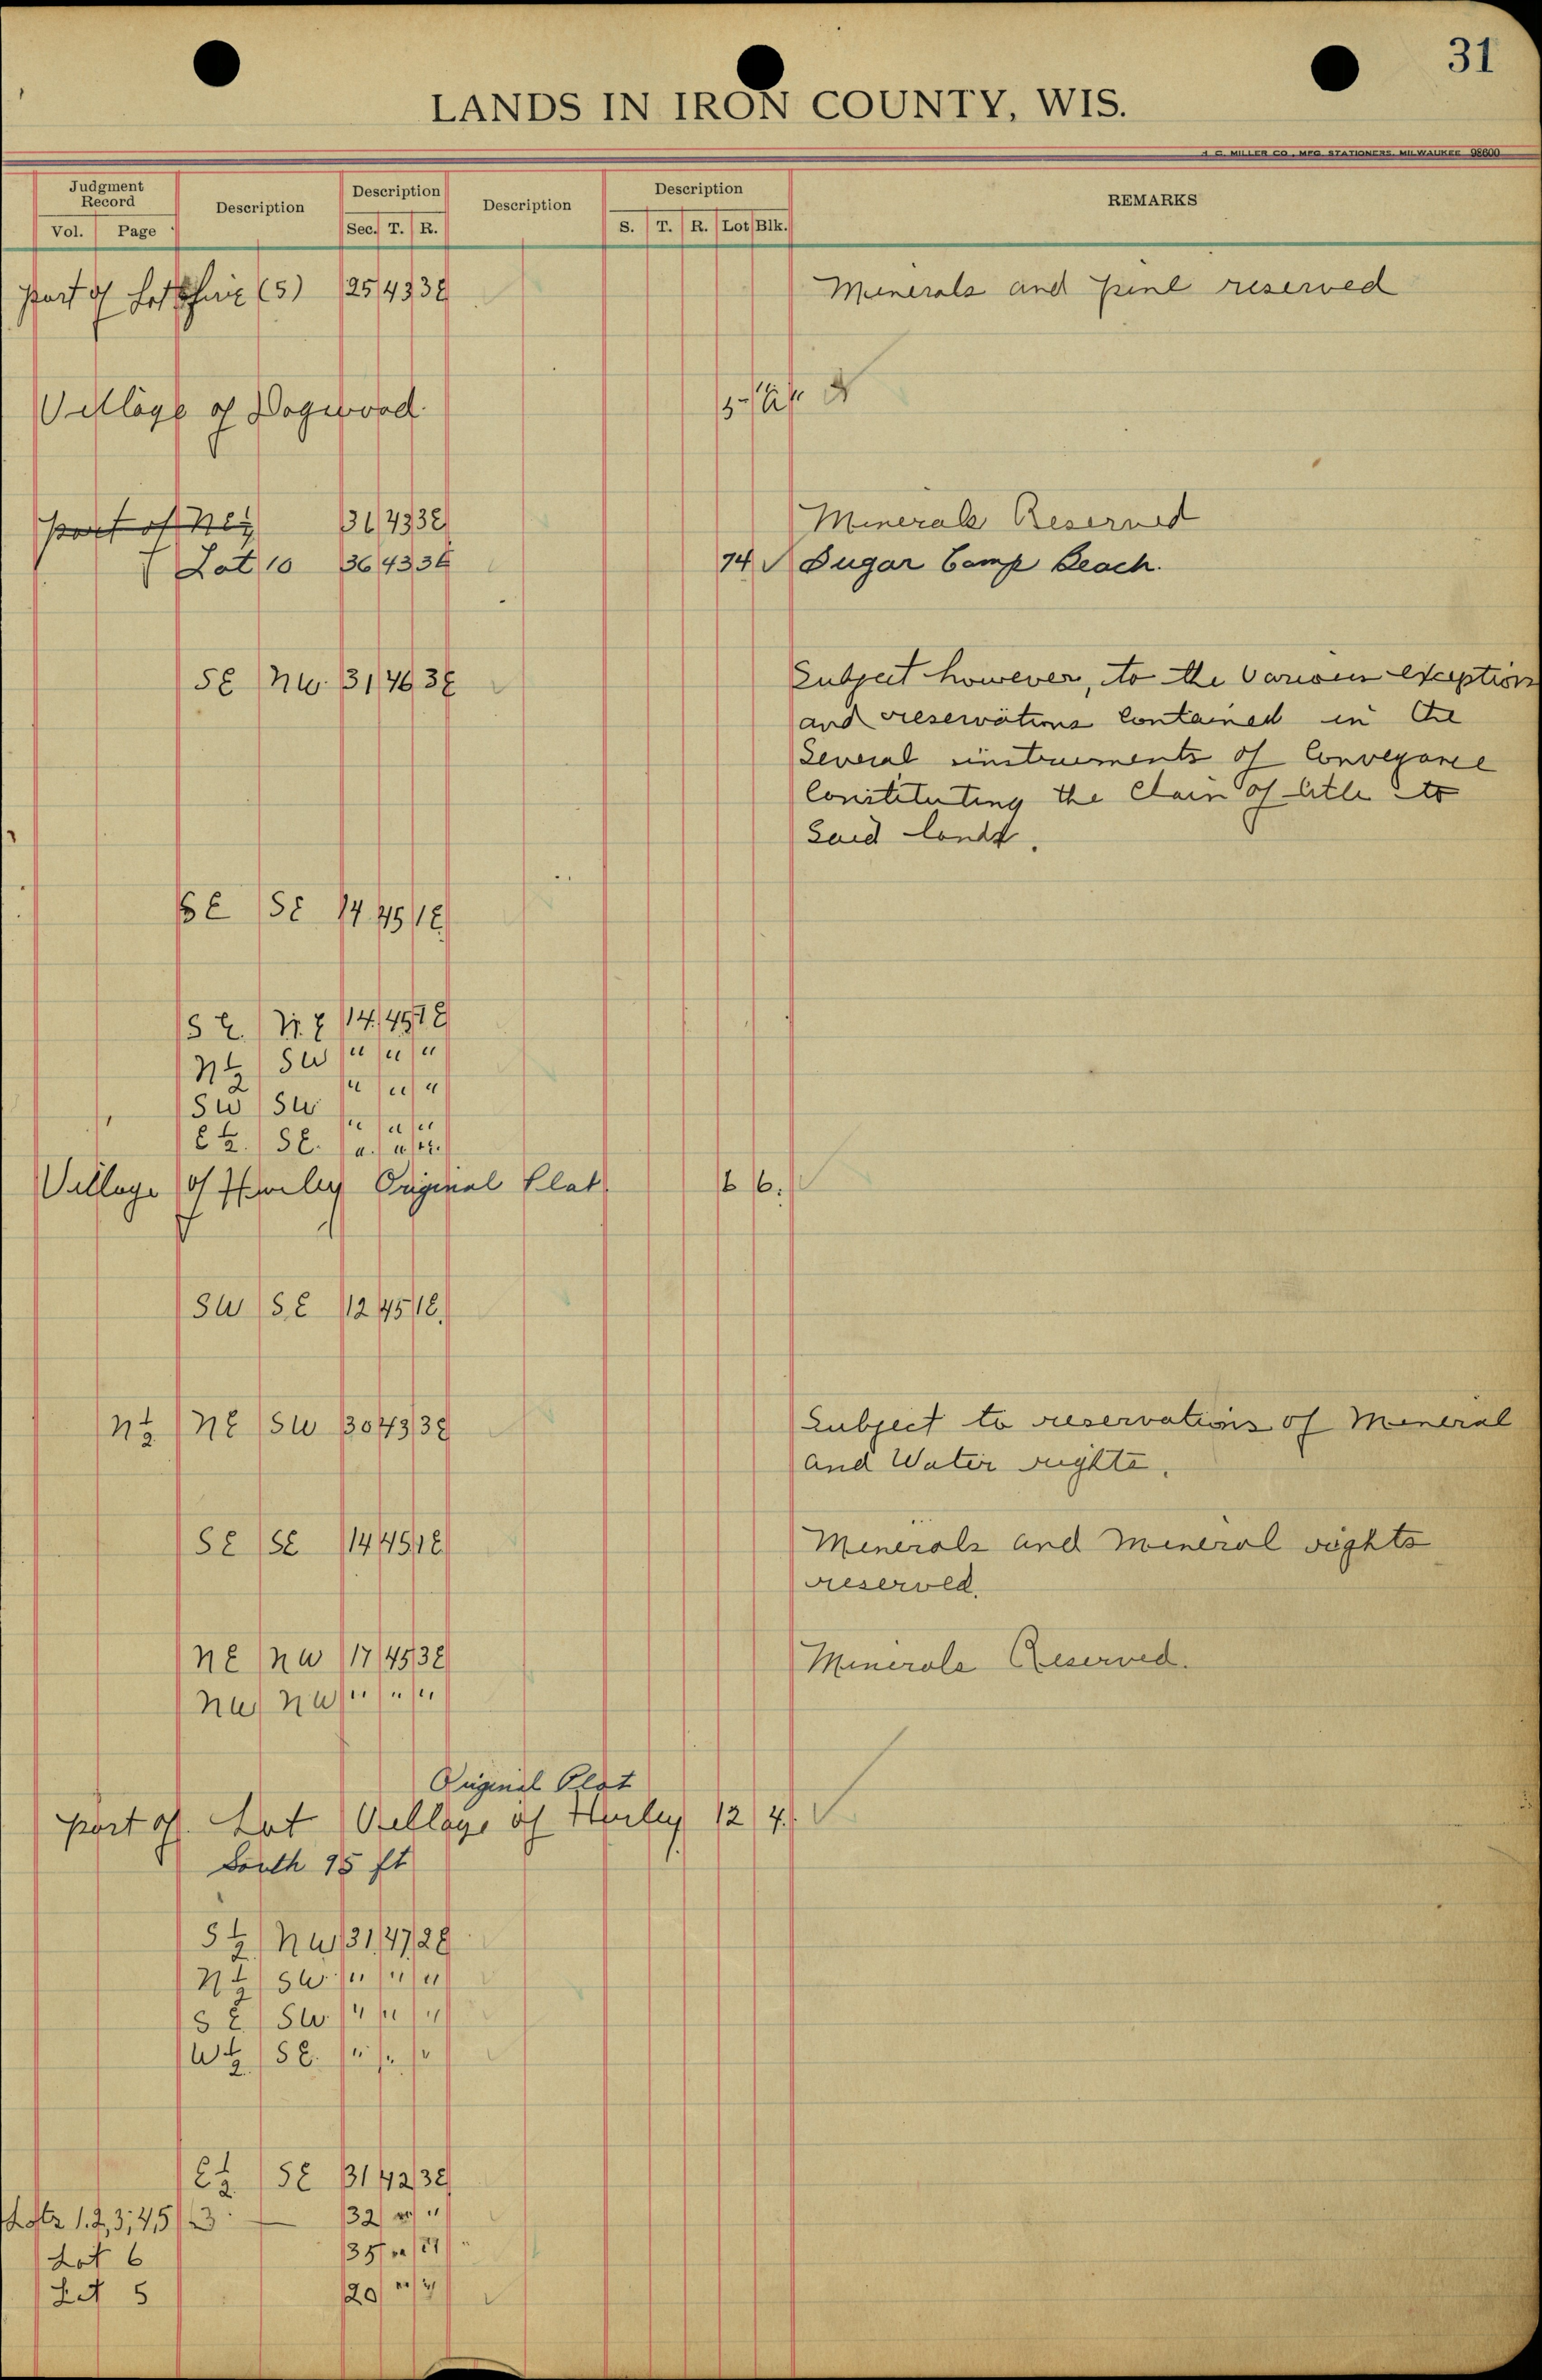 31
LANDS IN IRON COUNTY, WIS.
MILLER CO., MFG. STATIONERS, MILWAUKEE 98600
Judgment Record Description Description Description Description REMARKS
Vol. Page Sec. T. R. S. T. R. Lot Blk.
Part of Lot five (5) 25 43 3E Minerals and pine reserved
Village of Dogwood.
part of NE 36 43 3E Minerals Reserved
Lot 10 36 43 3E 74 ✓ Sugar Camp Beach.
SE NW. 31 46 3E Subject however, to the various exceptions
and reservations contained in the
Several instruments of Conveyance
Constituting the Chain of title to
Said lands.
SE SE 14 45 1E
SE. N.E 14 45 1E
N½ SW " " "
SW SW " " "
E½. SE. " " "
Village of Hurley Original Plat 6 6.
SW S.E 12 45 1E.
N½ NE SW 30 43 3E Subject to reservations of Mineral
and Water rights.
SE SE 14 45 1E Minerals and Mineral rights
reserved.
NE NW 17 45 3E Minerals Reserved.
NW NW " " "
Original Plat
Part of Lot Village of Hurley 12 4. ✓
South 95 ft
S½ NW 31 47 2E
N½ SW. " " "
SE SW. " " "
W½ SE. " " "
E½ SE 31 42 3E
Lots 1.2,3,4,5 32 " "
Lot 6 35 " "
Lot 5 20 " "